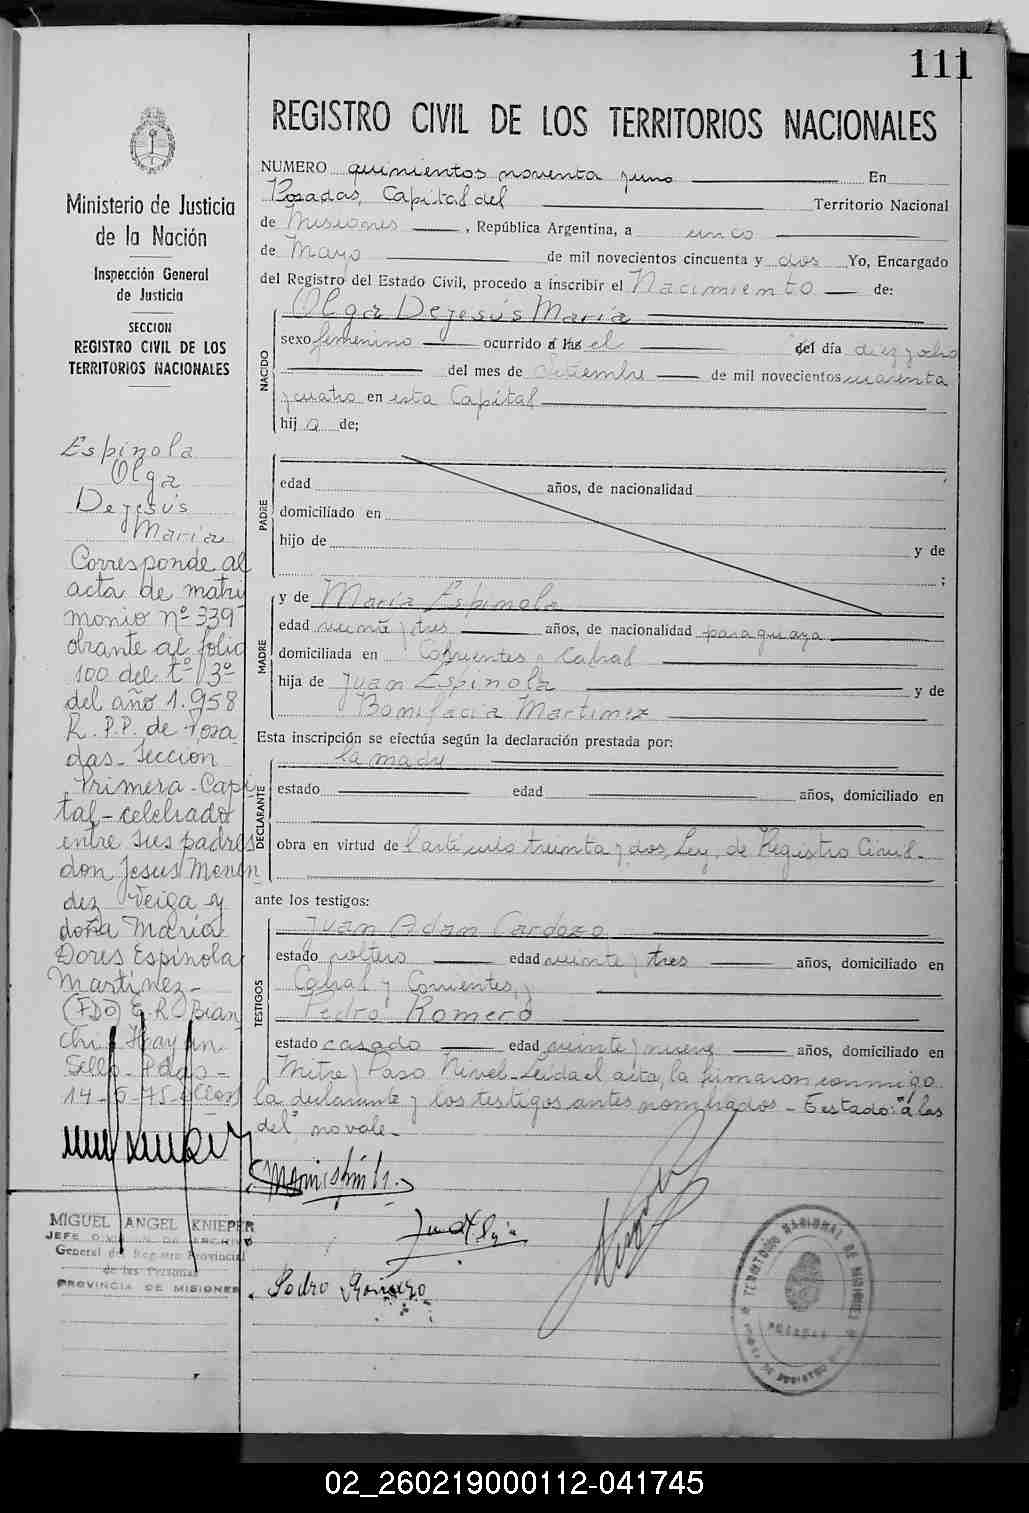 111
REGISTRO CIVIL DE LOS TERRITORIOS NACIONALES
Ministerio de Justicia
de la Nación
Inspección General
de Justicia
SECCION
REGISTRO CIVIL DE LOS
TERRITORIOS NACIONALES
Espínola
Olga
Dejesús
María
Corresponde al
acta de matri
monio nº 339
obrante al folio
100 del tº 3º
del año 1.958
R. P.P. de Posa
das - Sección
Primera - Capi
tal - celebrado
entre sus padres
don Jesus Menén
dez Veiga y
doña María
Doris Espínola
Martínez -
(FDO) E. R. Bian
chi Hay un
Sello - Pdas -
MIGUEL ANGEL KNIEPER
JEFE DIVISION DE ARCHIVO
General del Registro Provincial
de las Personas
PROVINCIA DE MISIONES
NUMERO quinientos noventa y uno En
Posadas, Capital del Territorio Nacional
de Misiones, República Argentina, a unco
de Mayo de mil novecientos cincuenta y dos Yo, Encargado
del Registro del Estado Civil, procedo a inscribir el Nacimiento de:
NACIDO
Olga Dejesús María
sexo femenino ocurrido a las el del día diez y ocho
del mes de de mil novecientos cuarenta
y cuatro en esta Capital
hij a de;
PADRE
edad años, de nacionalidad
domiciliado en
hijo de y de
;
MADRE
y de María Espínola
edad veinte y tres años, de nacionalidad paraguaya
domiciliada en Corrientes y Cabral
hija de Juan Espínola y de
Bonifacia Martinez
Esta inscripción se efectúa según la declaración prestada por:
DECLARANTE
la madre
estado edad años, domiciliado en
obra en virtud de l'artículo treinta y dos, Ley, de Registro Civil.
ante los testigos:
TESTIGOS
Juan Adan Cardozo
estado soltero edad veinte y tres años, domiciliado en
Cabral y Corrientes, y
Pedro Romero
estado casado edad veinte y nueve años, domiciliado en
Mitre y Paso Nivel - Leída el acta, la firmaron conmigo
la declarante y los testigos antes nombrados - Testado: "a las
del" no vale -
Pedro Romero
TERRITORIO NACIONAL DE MISIONES
POSADAS
02_260219000112-041745